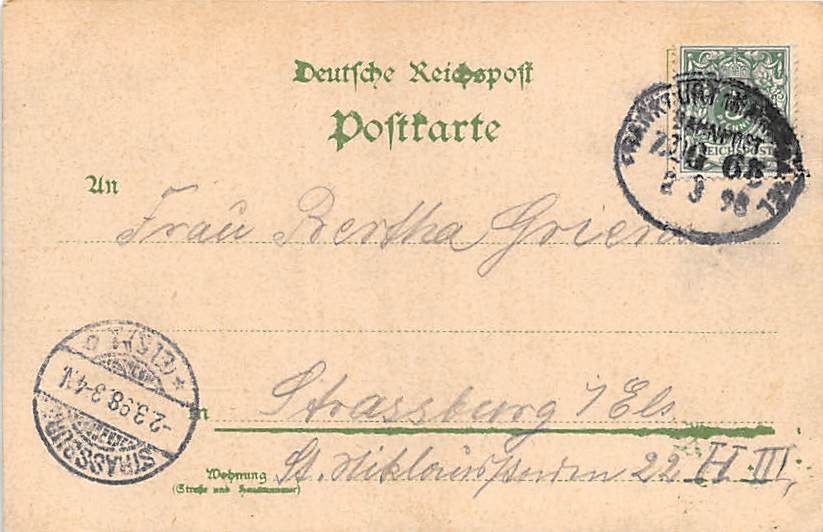 Deutsche Reichspost
Postkarte
REICHSPOST
FRANKFURT
BAHNPOST
ZUG 68
2 3 98
An
Frau Bertha
STRASSBURG
(ELS) 1
-2.3.98.3-4.N.
in Strassburg i/Els.
Wohnung St. 22 II III,
(Straße und Hausnummer)